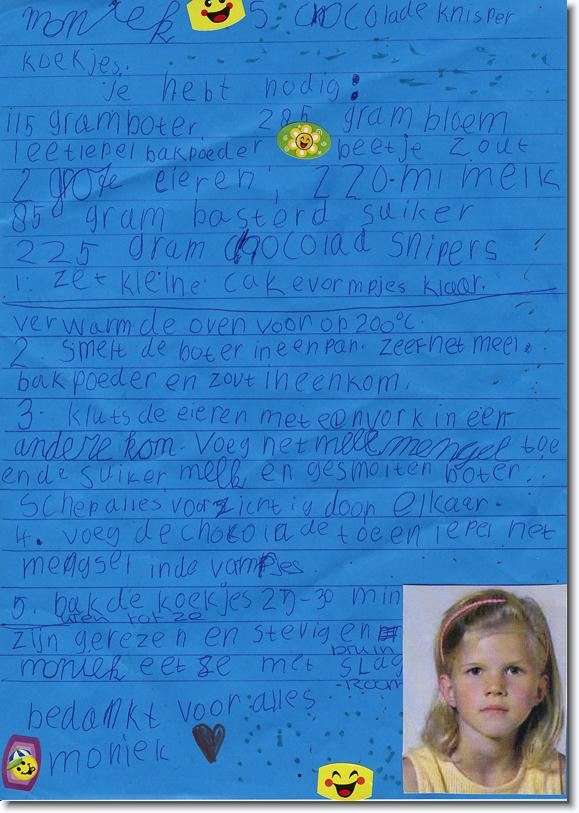 moniek 5 chocolade knisper
koekjes.
Je hebt nodig:
115 gram boter 285 gram bloem
1 eetlepel bakpoeder beetje zout
2 grote eieren, 220 ml melk
85 gram basterd suiker
225 gram chocolad snipers
1. zet kleine cakevormpjes klaar.
verwarm de oven voor op 200°C.
2. Smelt de boter in een pan. zeef het meel.
bakpoeder en zout in een kom.
3. kluts de eieren met een vork in een
andere kom. Voeg het mengel toe
en de suiker melk en gesmolten boter.
Schep alles voorzichtig door elkaar.
4. voeg de chocolade toe en lepel het
mengsel in de vormpjes
5. bak de koekjes 25-30 min
uren tot ze
zijn gerezen en stevig en
bruin
moniek eet ze met slag
-Room
bedankt voor alles
moniek